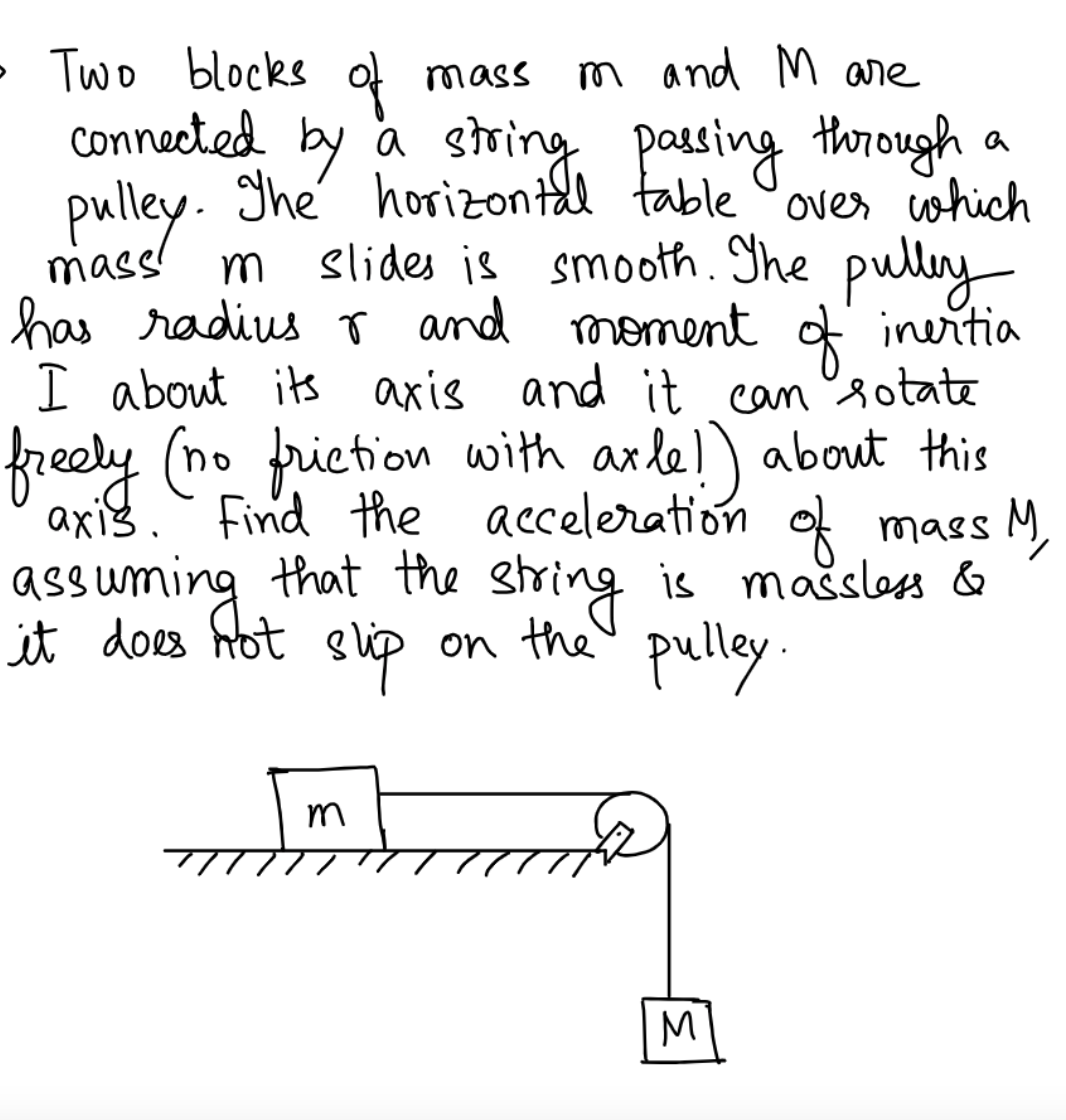 Two blocks of mass m and M are
connected by a string passing through a
pulley. The horizontal table over which
mass m slides is smooth. The pulley
has radius r and moment of inertia
I about its axis and it can rotate
freely (no friction with axle!) about this
axis. Find the acceleration of mass M,
assuming that the string is massless &
it does not slip on the pulley.
m
M